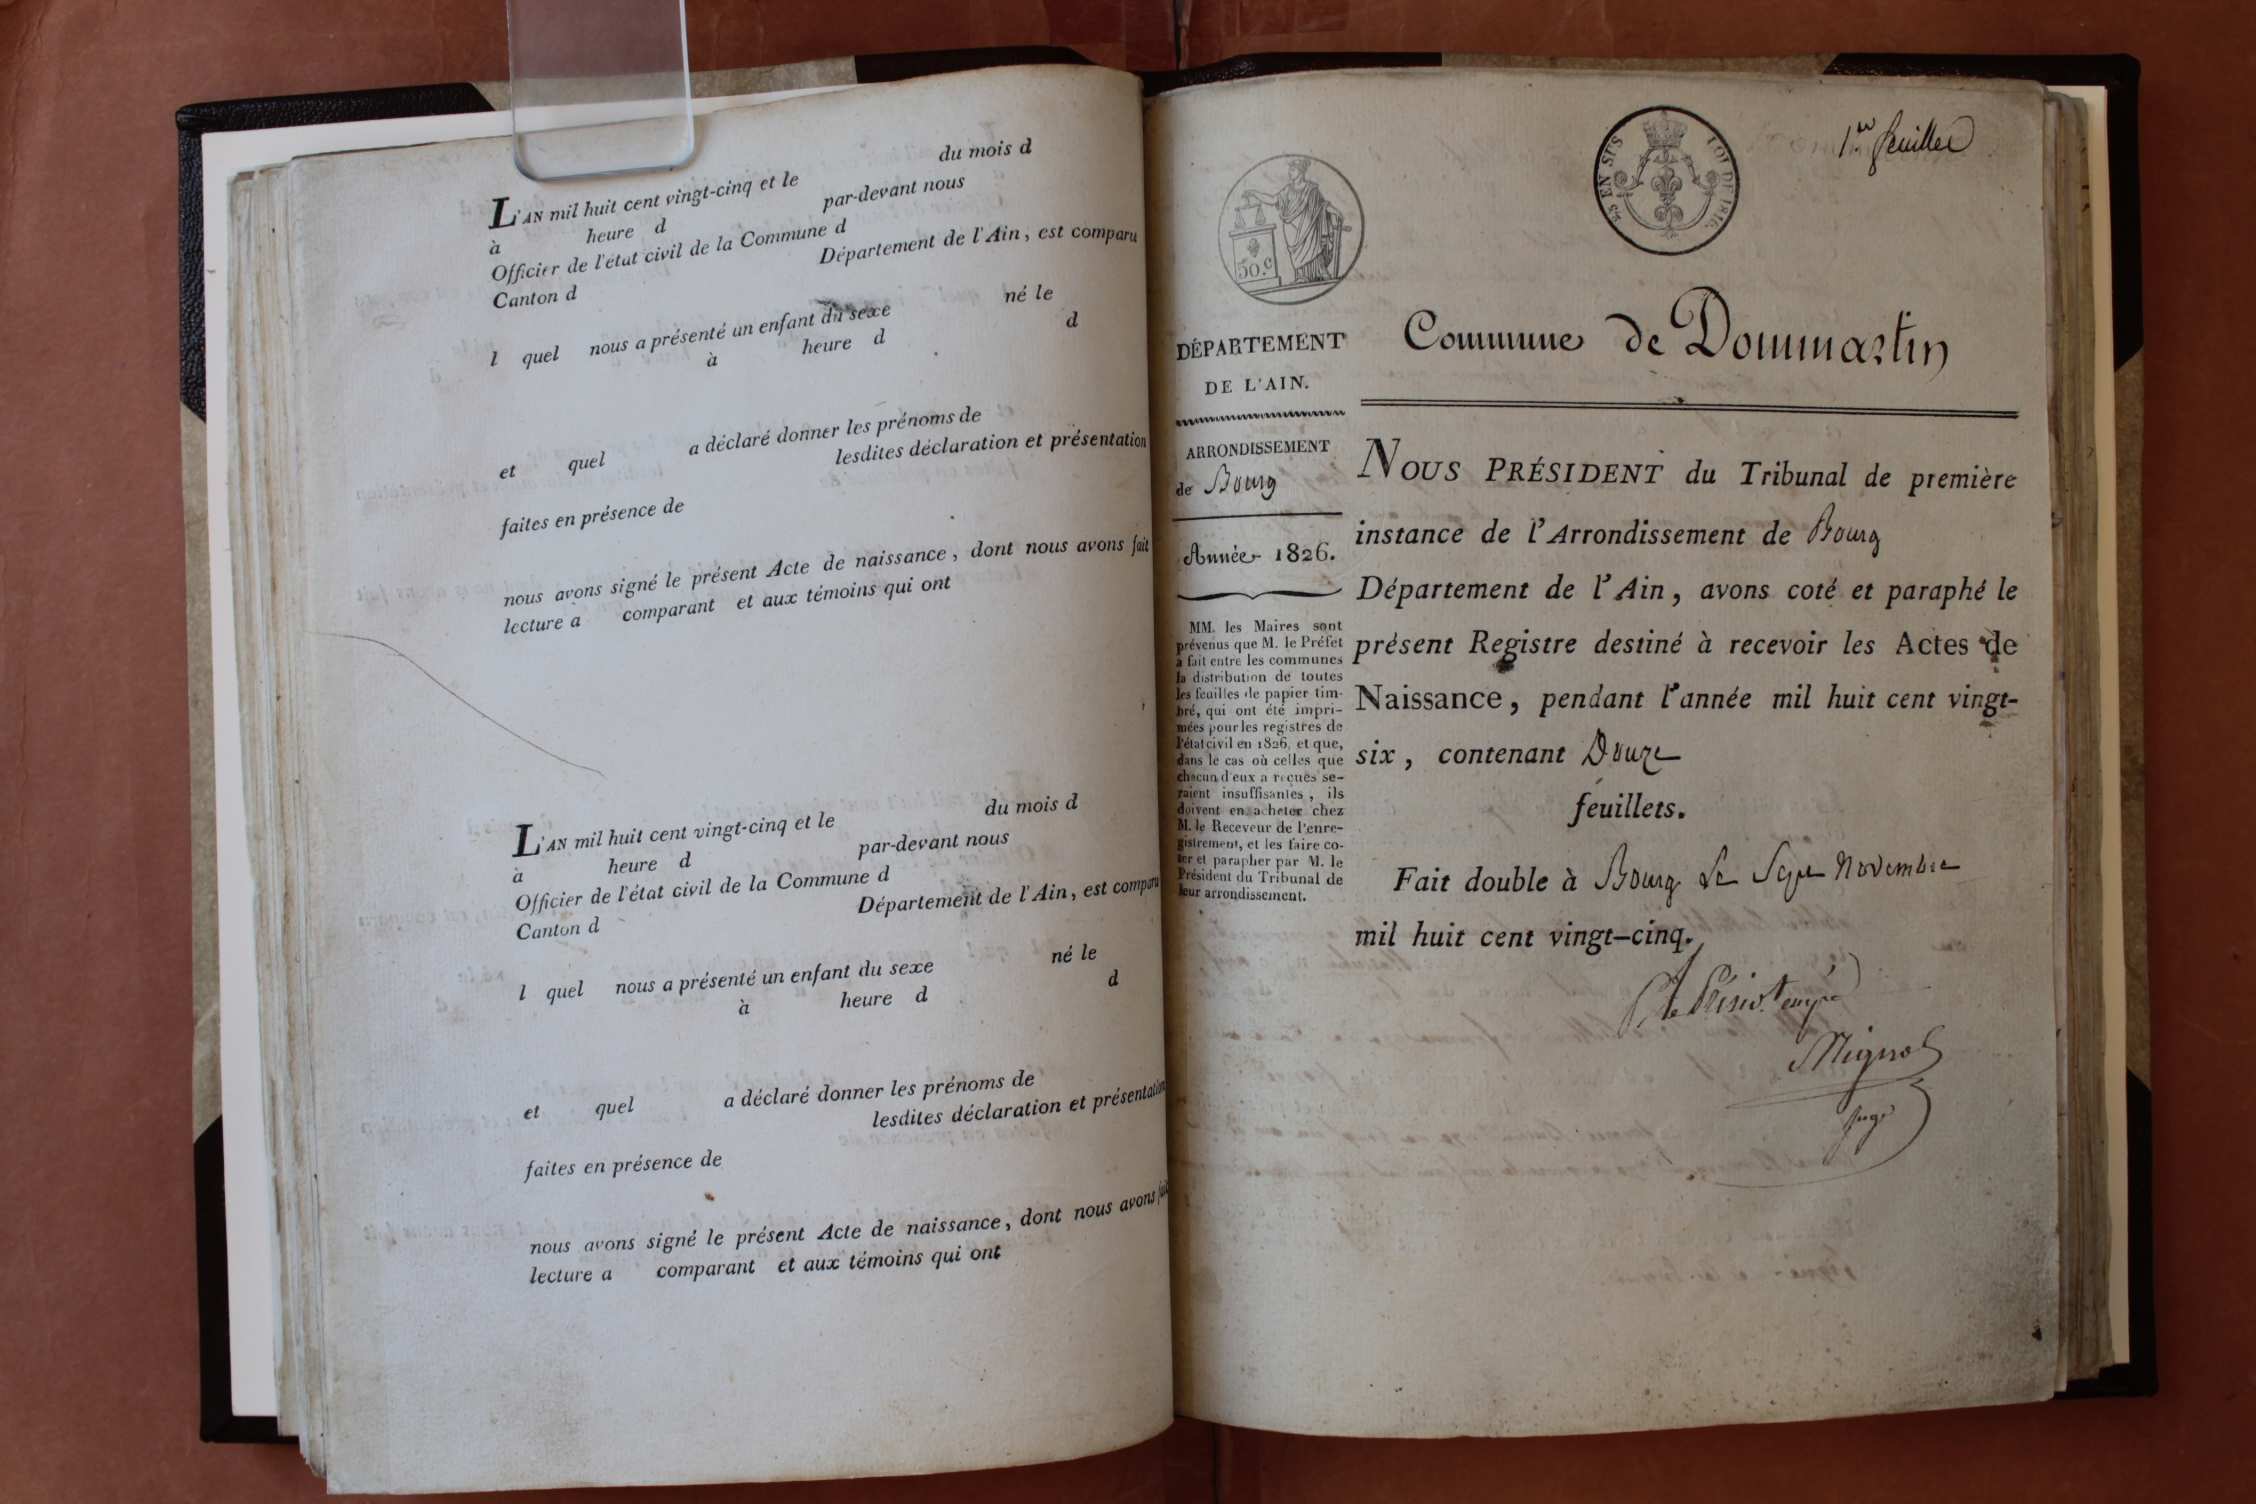 L'AN mil huit cent vingt-cinq et le du mois d
à heure d par-devant nous
Officier de l'état civil de la Commune d
Canton d Département de l'Ain, est comparu
l quel nous a présenté un enfant du sexe né le
à heure d d
et quel a déclaré donner les prénoms de
lesdites déclaration et présentation
faites en présence de
nous avons signé le présent Acte de naissance, dont nous avons fait
lecture a comparant et aux témoins qui ont
L'AN mil huit cent vingt-cinq et le du mois d
à heure d par-devant nous
Officier de l'état civil de la Commune d
Canton d Département de l'Ain, est comparu
l quel nous a présenté un enfant du sexe né le
à heure d d
et quel a déclaré donner les prénoms de
lesdites déclaration et présentation
faites en présence de
nous avons signé le présent Acte de naissance, dont nous avons fait
lecture a comparant et aux témoins qui ont
1er feuillet
EN SUS LOI DE 1816
50.c
DÉPARTEMENT
DE L'AIN.
ARRONDISSEMENT
de Bourg
Année 1826.
MM. les Maires sont
prévenus que M. le Préfet
a fait entre les communes
la distribution de toutes
les feuilles de papier tim-
bré, qui ont été impri-
mées pour les registres de
l'état civil en 1826, et que,
dans le cas où celles que
chacun d'eux a reçues se-
raient insuffisantes, ils
doivent en acheter chez
M. le Receveur de l'enre-
gistrement, et les faire co-
ter et parapher par M. le
Président du Tribunal de
leur arrondissement.
Commune de Dommartin
NOUS PRÉSIDENT du Tribunal de première
instance de l'Arrondissement de Bourg
Département de l'Ain, avons coté et paraphé le
présent Registre destiné à recevoir les Actes de
Naissance, pendant l'année mil huit cent vingt-
six, contenant Douze
feuillets.
Fait double à Bourg Le Sept Novembre
mil huit cent vingt-cinq.
P. le Présid.t
Mignot
Juge